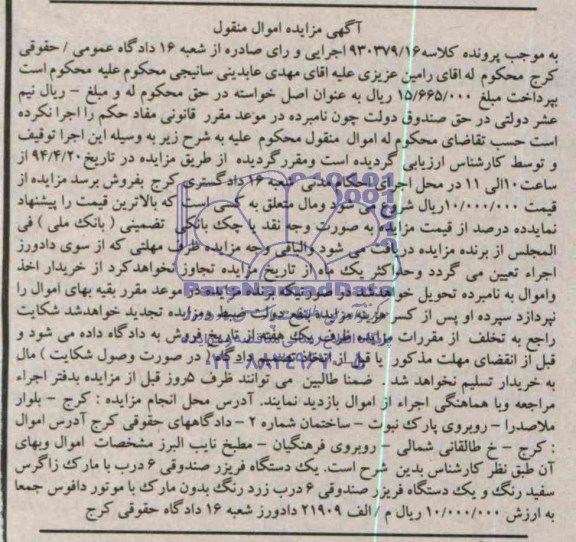 آگهی مزایده اموال منقول
به موجب پرونده کلاسه ۹۳۰۳۷۹/۱۶ اجرایی و رای صادره از شعبه ۱۶ دادگاه عمومی / حقوقی
کرج محکوم له اقای رامین عزیزی علیه اقای مهدی عابدینی سانیجی محکوم علیه محکوم است
بپرداخت مبلغ ۱۵/۶۶۵/۰۰۰ ریال به عنوان اصل خواسته در حق محکوم له و مبلغ – ریال نیم
عشر دولتی در حق صندوق دولت چون نامبرده در موعد مقرر قانونی مفاد حکم را اجرا نکرده
است حسب تقاضای محکوم له اموال منقول محکوم علیه به شرح زیر به وسیله این اجرا توقیف
و توسط کارشناس ارزیابی گردیده است ومقررگردیده از طریق مزایده در تاریخ ۹۴/۴/۲۰ از
ساعت ۱۰الی ۱۱ در محل اجرای احکام مدنی شعبه ۱۶ دادگستری کرج بفروش برسد مزایده از
قیمت ۱۰/۰۰۰/۰۰۰ریال شروع می شود ومال متعلق به کسی است که بالاترین قیمت را پیشنهاد
نمایدده درصد از قیمت مزایده به صورت وجه نقد یا چک بانکی تضمینی ( بانک ملی ) فی
المجلس از برنده مزایده دریافت می شود والباقی وجه مزایده ظرف مهلتی که از سوی دادورز
اجراء تعیین می گردد وحداکثر یک ماه از تاریخ مزایده تجاوز نخواهدکرد از خریدار اخذ
واموال به نامبرده تحویل خواهدشد در صورتیکه برنده مزایده در موعد مقرر بقیه بهای اموال را
نپردازد سپرده او پس از کسر هزینه مزایده بنفع دولت ضبط ومزایده تجدید خواهدشد شکایت
راجع به تخلف از مقررات مزایده ظرف یک هفته از تاریخ فروش به دادگاه داده می شود و
قبل از انقضای مهلت مذکور یا قبل از اتخاذ تصمیم دادگاه ( در صورت وصول شکایت ) مال
به خریدار تسلیم نخواهد شد . ضمنا طالبین می توانند ظرف ۵روز قبل از مزایده بدفتر اجراء
مراجعه وبا هماهنگی اجراء از اموال بازدید نمایند. آدرس محل انجام مزایده : کرج – بلوار
ملاصدرا – روبروی پارک نبوت – ساختمان شماره ۲ – دادگاههای حقوقی کرج آدرس اموال
: کرج – خ طالقانی شمالی – روبروی فرهنگیان – مطبخ نایب البرز مشخصات اموال وبهای
آن طبق نظر کارشناس بدین شرح است. یک دستگاه فریزر صندوقی ۶ درب با مارک زاگرس
سفید رنگ و یک دستگاه فریزر صندوقی ۶ درب زرد رنگ بدون مارک با موتور دافوس جمعا
به ارزش ۱۰/۰۰۰/۰۰۰ ریال م / الف ۲۱۹۰۹ دادورز شعبه ۱۶ دادگاه حقوقی کرج
ParsNamadData
۰۲۱-۸۸۳۴۹۶۷۰-۵